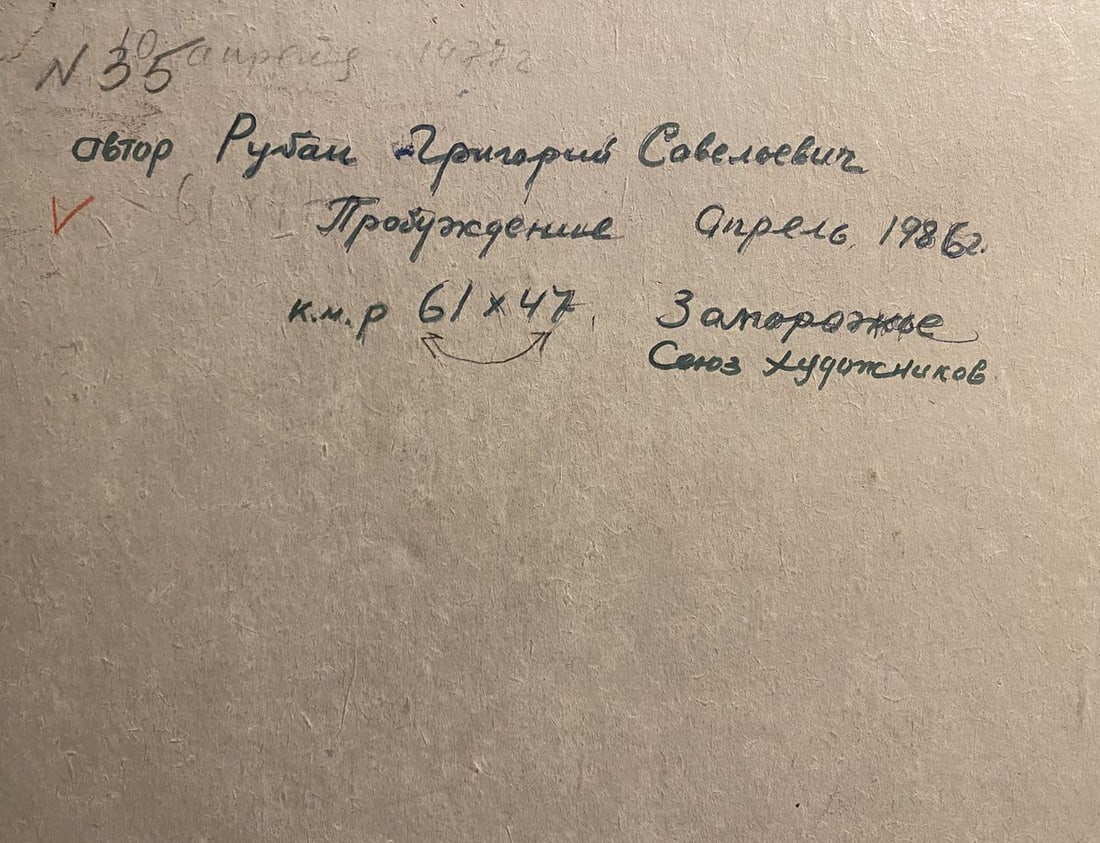 N 35 10 апреля 1977г
автор Рубан Григорий Савельевич
Пробуждение Апрель 1986г.
к.м.р 61 х 47, Запорожье
Союз художников